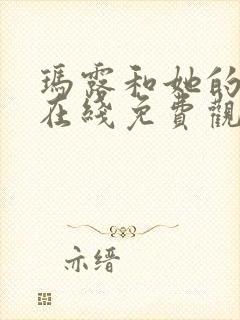 瑪露和她的
在綫免費觀
亦缙